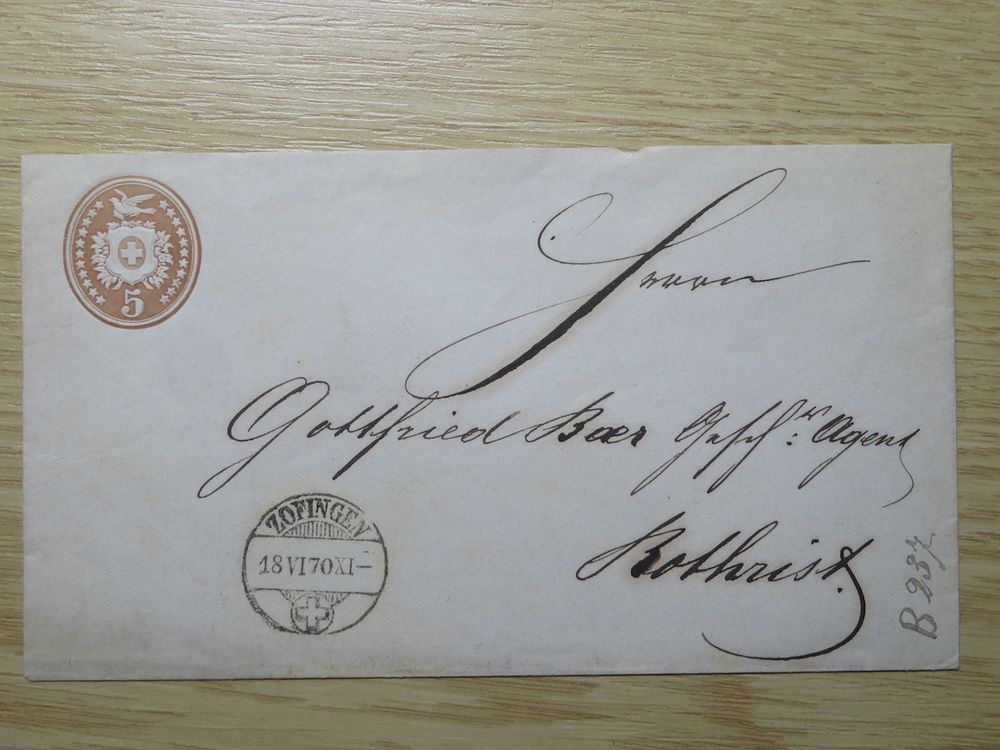 5
Herrn
Gottfried Baer Gesch: Agent
Rothrist.
ZOFINGEN
18 VI 70 XI–
B 237